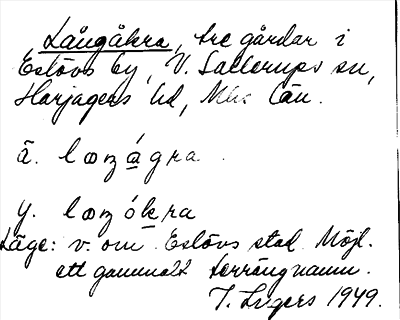 Långåkra, tre gårdar i
Eslövs by, V. Sallerups sn,
Harjagers hd, Mlhs län.
ä. lɷŋágra.
y. lɷŋókra
Läge: v. om Eslövs stad. Möjl.
ett gammalt terrängnamn.
I. Ingers 1949.